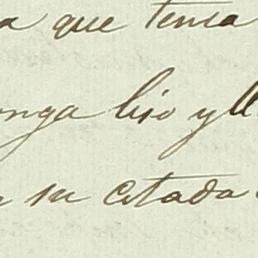 a que tenia
nga liso y ll
su citada